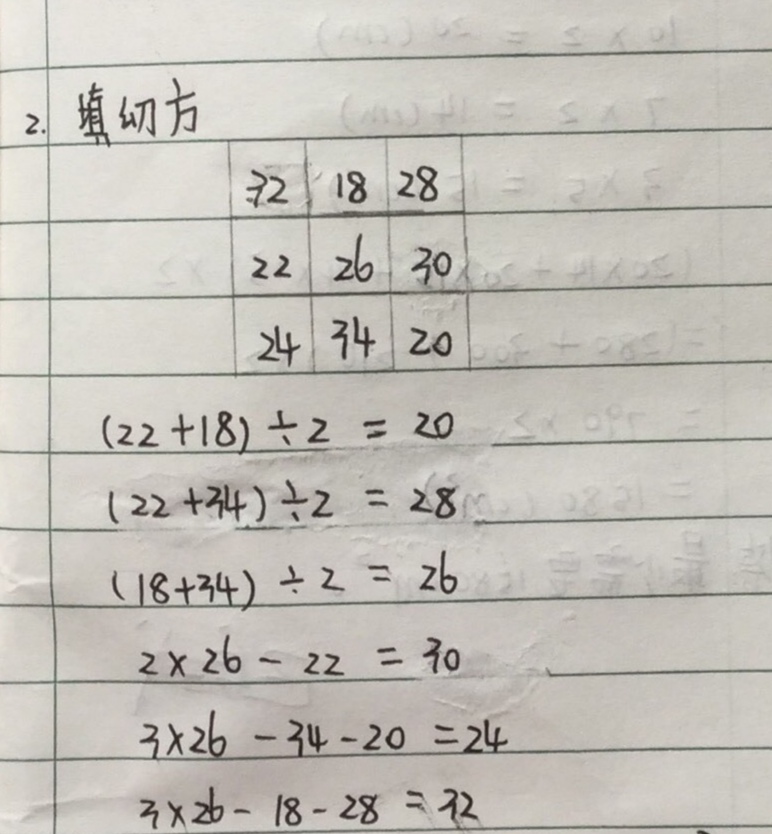 2. 填幻方
32 18 28
22 26 30
24 34 20
(22+18)÷2 = 20
(22+34)÷2 = 28
(18+34)÷2 = 26
2×26-22 = 30
3×26-34-20=24
3×26-18-28=32